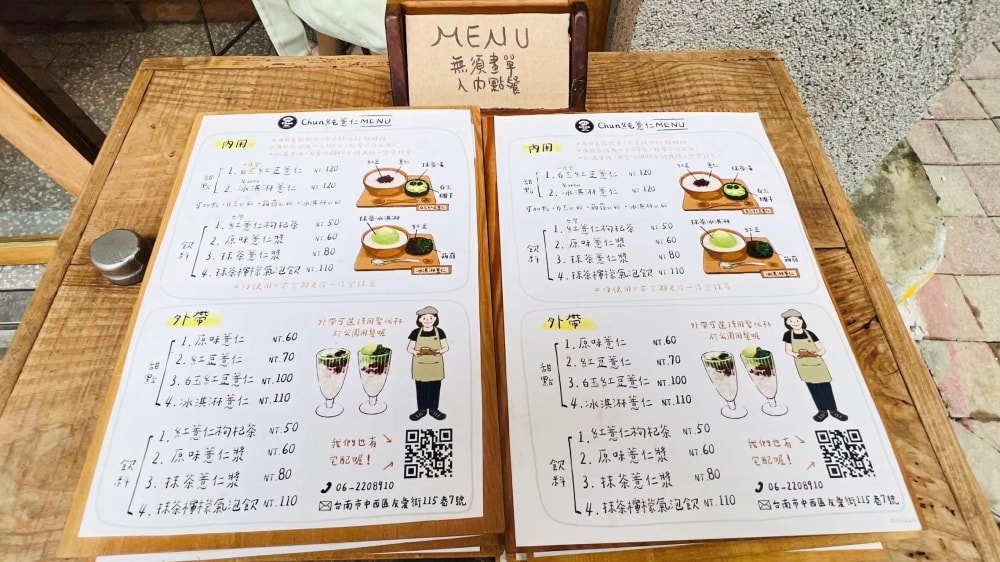 MENU
無須畫單
入內點餐
Chun純薏仁MENU
內用
甜點
1. 白玉紅豆薏仁 NT.120
2. 冰淇淋薏仁 NT.120
飲料
1. 紅薏仁枸杞茶 NT.50
2. 原味薏仁漿 NT.60
3. 抹茶薏仁漿 NT.80
4. 抹茶檸檬氣泡飲 NT.110
紅豆
薏仁
抹茶湯
白玉糰子
白玉紅豆薏仁
抹茶冰淇淋
紅豆
蒟蒻
冰淇淋薏仁
外帶
甜點
1. 原味薏仁 NT.60
2. 紅豆薏仁 NT.70
3. 白玉紅豆薏仁 NT.100
4. 冰淇淋薏仁 NT.110
飲料
1. 紅薏仁枸杞茶 NT.50
2. 原味薏仁漿 NT.60
3. 抹茶薏仁漿 NT.80
4. 抹茶檸檬氣泡飲 NT.110
我們也有
宅配喔！
06-2208910
台南市中西區友愛街115巷7號
Chun純薏仁MENU
內用
甜點
1. 白玉紅豆薏仁 NT.120
2. 冰淇淋薏仁 NT.120
飲料
1. 紅薏仁枸杞茶 NT.50
2. 原味薏仁漿 NT.60
3. 抹茶薏仁漿 NT.80
4. 抹茶檸檬氣泡飲 NT.110
紅豆
薏仁
抹茶湯
白玉糰子
白玉紅豆薏仁
抹茶冰淇淋
紅豆
蒟蒻
冰淇淋薏仁
外帶
甜點
1. 原味薏仁 NT.60
2. 紅豆薏仁 NT.70
3. 白玉紅豆薏仁 NT.100
4. 冰淇淋薏仁 NT.110
飲料
1. 紅薏仁枸杞茶 NT.50
2. 原味薏仁漿 NT.60
3. 抹茶薏仁漿 NT.80
4. 抹茶檸檬氣泡飲 NT.110
我們也有
宅配喔！
06-2208910
台南市中西區友愛街115巷7號